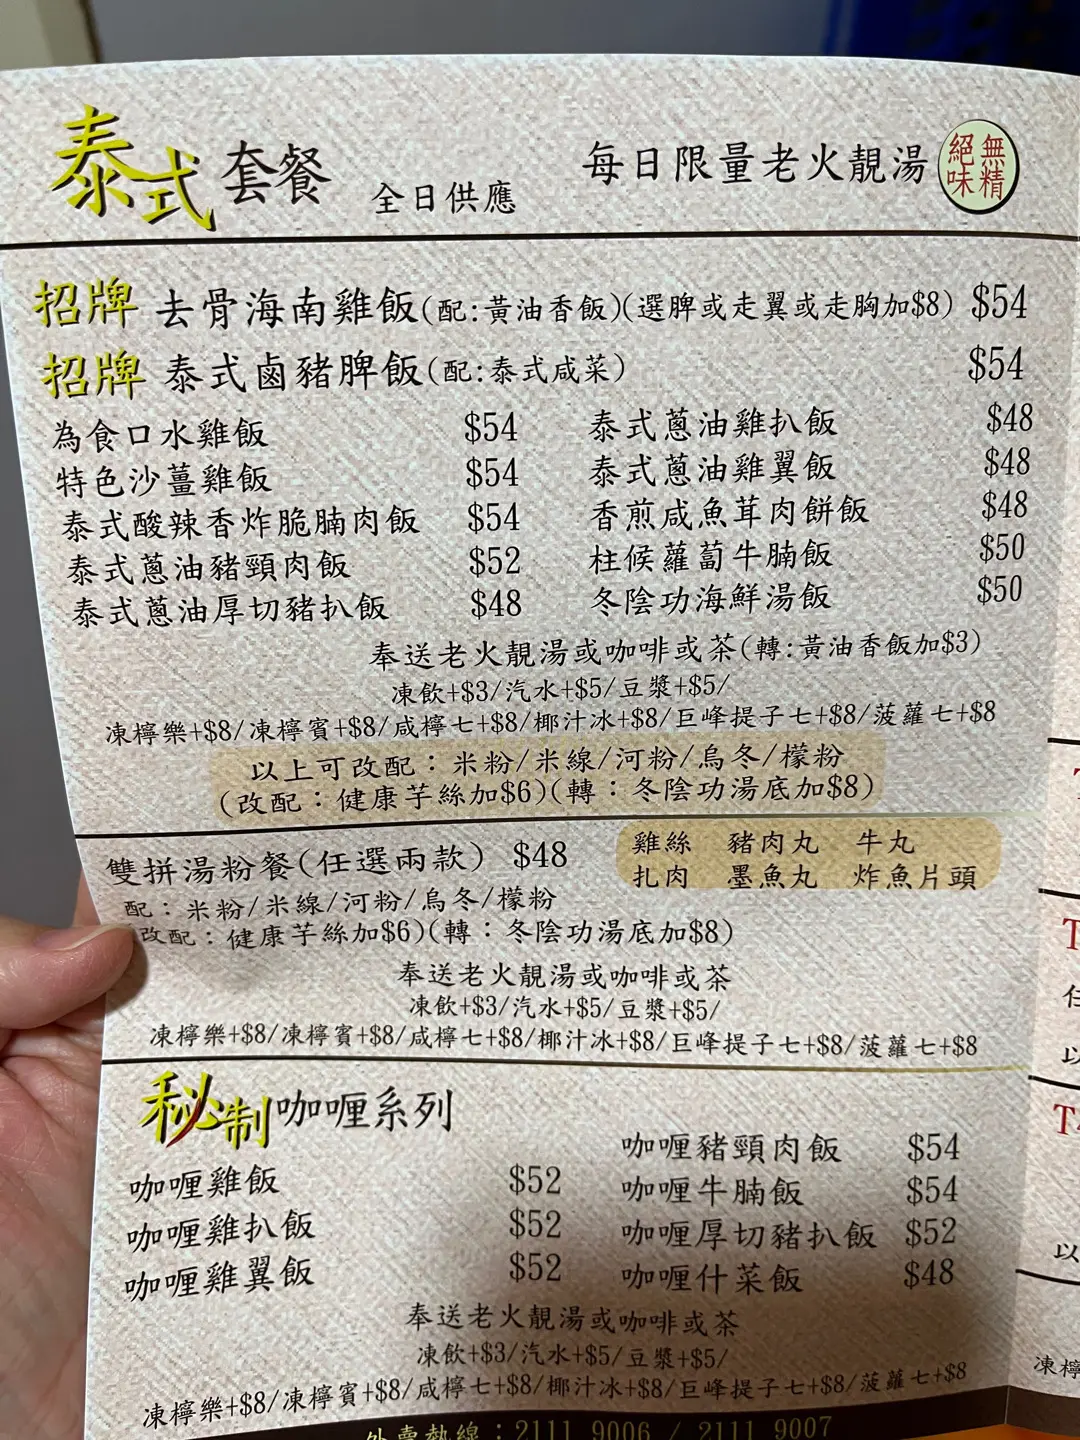 泰式套餐 全日供應 每日限量老火靚湯 絕味 無精
招牌 去骨海南雞飯(配:黃油香飯)(選脾或走翼或走胸加$8) $54
招牌 泰式鹵豬脾飯(配:泰式咸菜) $54
為食口水雞飯 $54 泰式蔥油雞扒飯 $48
特色沙薑雞飯 $54 泰式蔥油雞翼飯 $48
泰式酸辣香炸脆腩肉飯 $54 香煎咸魚茸肉餅飯 $48
泰式蔥油豬頸肉飯 $52 柱候蘿蔔牛腩飯 $50
泰式蔥油厚切豬扒飯 $48 冬陰功海鮮湯飯 $50
奉送老火靚湯或咖啡或茶(轉:黃油香飯加$3)
凍飲+$3/汽水+$5/豆漿+$5/
凍檸樂+$8/凍檸賓+$8/咸檸七+$8/椰汁冰+$8/巨峰提子七+$8/菠蘿七+$8
以上可改配：米粉/米線/河粉/烏冬/檬粉
(改配：健康芋絲加$6)(轉：冬陰功湯底加$8)
雙拼湯粉餐(任選兩款) $48 雞絲 豬肉丸 牛丸
扎肉 墨魚丸 炸魚片頭
配：米粉/米線/河粉/烏冬/檬粉
(改配：健康芋絲加$6)(轉：冬陰功湯底加$8)
奉送老火靚湯或咖啡或茶
凍飲+$3/汽水+$5/豆漿+$5/
凍檸樂+$8/凍檸賓+$8/咸檸七+$8/椰汁冰+$8/巨峰提子七+$8/菠蘿七+$8
秘制咖喱系列
咖喱豬頸肉飯 $54
咖喱雞飯 $52 咖喱牛腩飯 $54
咖喱雞扒飯 $52 咖喱厚切豬扒飯 $52
咖喱雞翼飯 $52 咖喱什菜飯 $48
奉送老火靚湯或咖啡或茶
凍飲+$3/汽水+$5/豆漿+$5/
凍檸樂+$8/凍檸賓+$8/咸檸七+$8/椰汁冰+$8/巨峰提子七+$8/菠蘿七+$8
外賣熱線：2111 9006 / 2111 9007
T
任
以
T4
以
凍檸